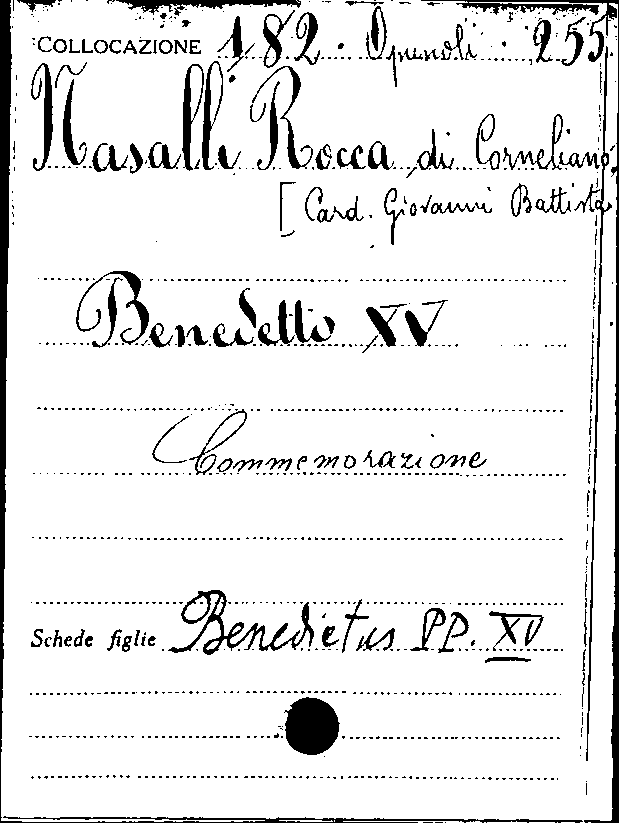 COLLOCAZIONE 182 · Opuscoli · 255
Nasalli Rocca di Corneliano
[Card. Giovanni Battista
Benedetto XV
Commemorazione
Schede figlie Benedictus PP. XV